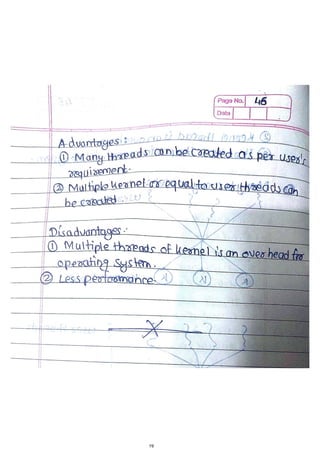 Page No. 45
Date
Advantages :
① Many threads can be created as per user's
requirement.
② Multiple kernel or equal to user threads can
be created
Disadvantages :
① Multiple threads of kernel is an overhead for
operating system.
② Less performance.
19